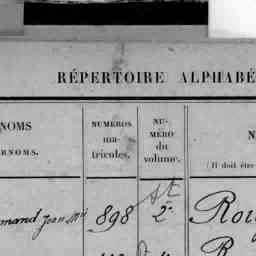 RÉPERTOIRE ALPHABÉ
NOMS
RNOMS.
NUMEROS
ma-
tricules.
NU-
MÉRO
du
volume.
N
(Il doit être
mand Jean
898
2
Rou